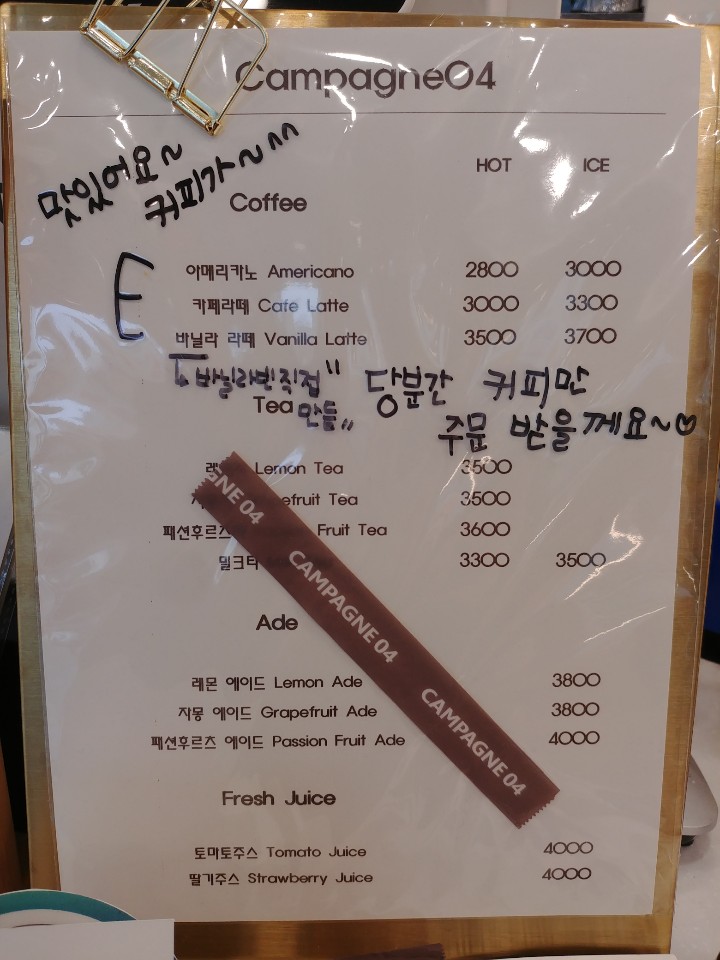 Campagne04
맛있어요~
커피가~^^
HOT ICE
Coffee
아메리카노 Americano 2800 3000
카페라떼 Cafe Latte 3000 3300
바닐라 라떼 Vanilla Latte 3500 3700
바닐라빈 직접
만듦
당분간 커피만
주문 받을께요~♡
Tea
Lemon Tea 3500
Tea 3500
패션후르츠 Fruit Tea 3600
밀크티 3300 3500
NE 04
CAMPAGNE 04
CAMPAGNE 04
Ade
레몬 에이드 Lemon Ade 3800
자몽 에이드 Grapefruit Ade 3800
패션후르츠 에이드 Passion Fruit Ade 4000
Fresh Juice
토마토주스 Tomato Juice 4000
딸기주스 Strawberry Juice 4000